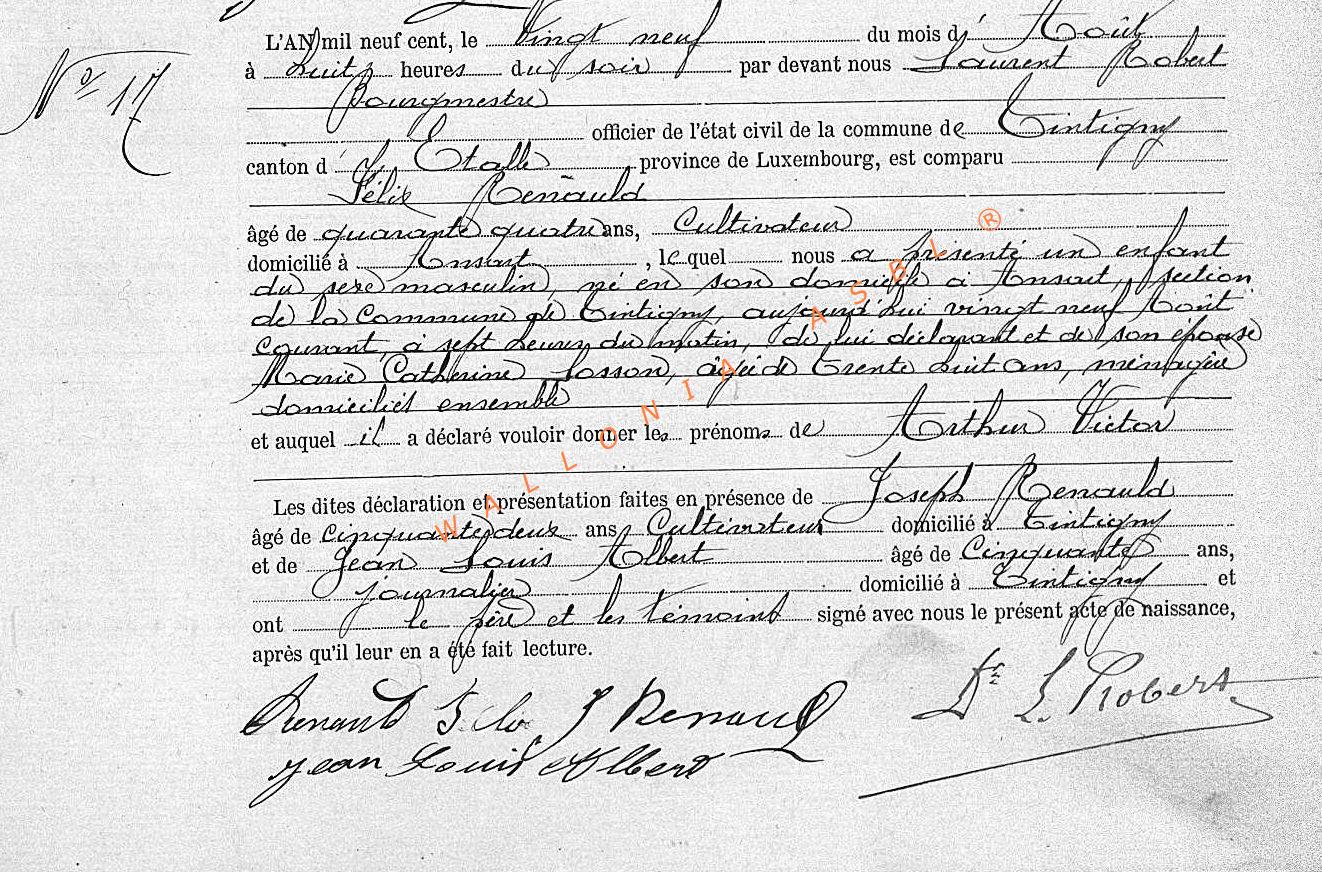 L'AN mil neuf cent, le vingt neuf du mois d' Août
N° 17
à huit heures du soir par devant nous Laurent Robert
Bourgmestre
officier de l'état civil de la commune de Tintigny
canton d' Etalle, province de Luxembourg, est comparu
Félix Renauld
âgé de quarante quatre ans, Cultivateur
domicilié à Ansart, lequel nous a présenté un enfant
du sexe masculin, né en son domicile à Ansart, section
de la Commune de Tintigny, aujourd'hui vingt neuf Août
courant, à sept heures du matin, de lui déclarant et de son épouse
Marie Catherine Sosson, âgée de trente huit ans, ménagère
domiciliés ensemble
et auquel il a déclaré vouloir donner les prénoms de Arthur Victor
Les dites déclaration et présentation faites en présence de Joseph Renauld
âgé de cinquante deux ans Cultivateur domicilié à Tintigny
et de Jean Louis Albert âgé de Cinquante ans,
journalier domicilié à Tintigny et
ont le père et les témoins signé avec nous le présent acte de naissance,
après qu'il leur en a été fait lecture.
Renauld J Renauld Dr L. Robert
Jean Louis Albert
WALLONIA ASBL ®